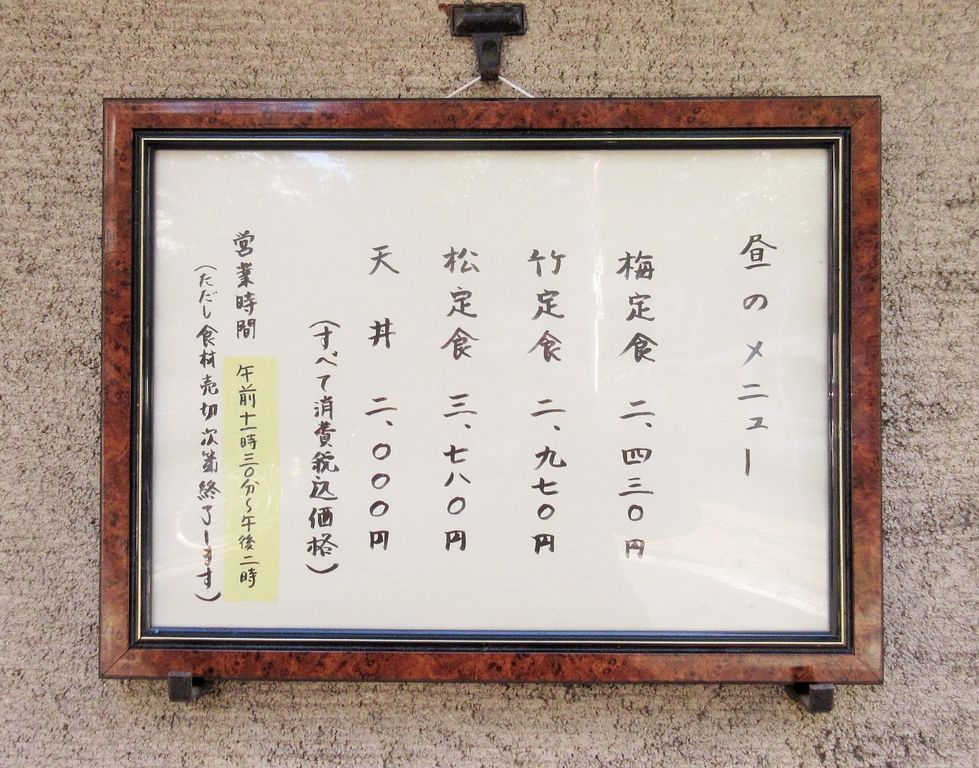 昼のメニュー
梅定食 二、四三〇円
竹定食 二、九七〇円
松定食 三、七八〇円
天丼 二、〇〇〇円
（すべて消費税込価格）
営業時間 午前十一時三〇分〜午後二時
（ただし食材売切次第終了します）